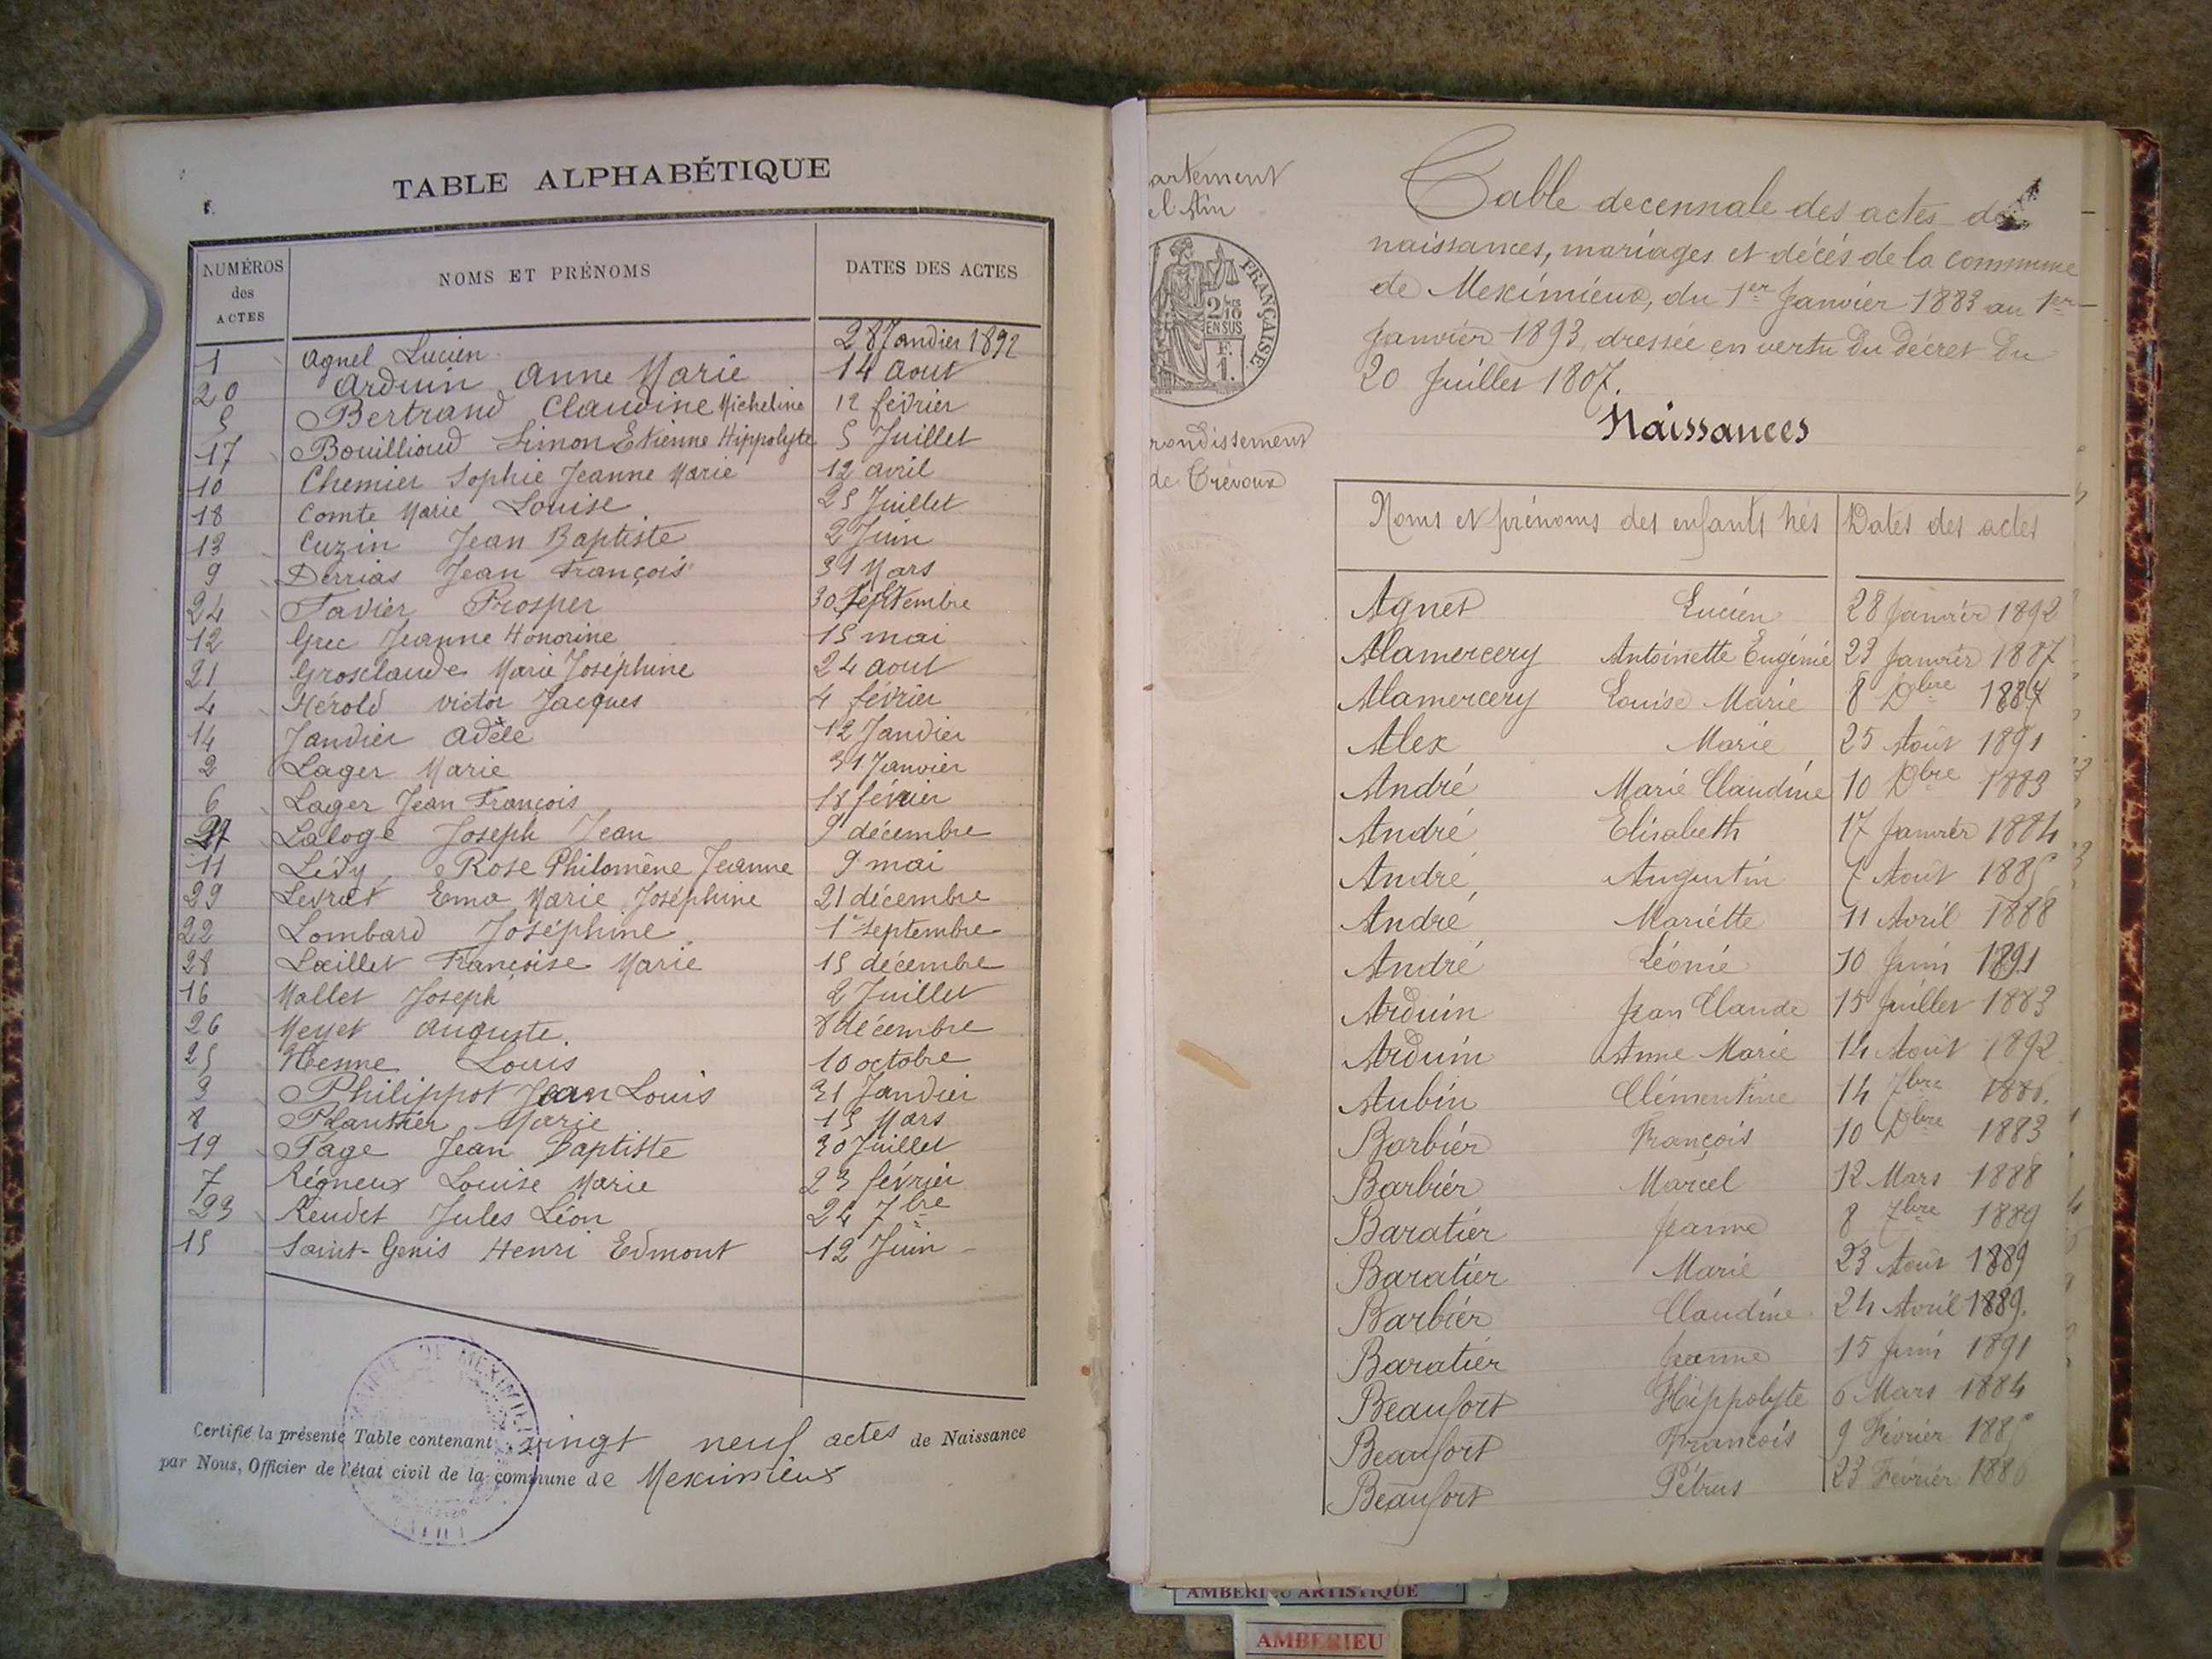 TABLE ALPHABÉTIQUE
NUMÉROS des ACTES NOMS ET PRÉNOMS DATES DES ACTES
1 Agnel Lucien 28 Janvier 1892
20 Arduin Anne Marie 14 Aout
5 Bertrand Claudine Micheline 12 février
17 Bouillioud Simon Etienne Hippolyte 5 Juillet
10 Chemier Sophie Jeanne Marie 12 avril
18 Comte Marie Louise 25 Juillet
13 Cuzin Jean Baptiste 2 Juin
9 Derrias Jean François 31 Mars
24 Favier Prosper 30 Septembre
12 Grec Jeanne Honorine 15 mai
21 Grosclaude Marie Joséphine 24 aout
4 Hérold victor Jacques 4 février
14 Janvier Adèle 12 Janvier
2 Lager Marie 31 Janvier
6 Lager Jean François 18 février
27 Laloge Joseph Jean 9 décembre
11 Lévy, Rose Philomène Jeanne 9 mai
29 Levrat Ema Marie Joséphine 21 décembre
22 Lombard Joséphine 1er septembre
28 Lœillet Françoise Marie 15 décembre
16 Mallet Joseph 2 Juillet
26 Meyet Auguste. 8 décembre
25 Louis 10 octobre
3 Philippot Jean Louis 31 Janvier
8 Plantier Marie 15 Mars
19 Page Jean Baptiste 30 Juillet
7 Régneux Louise Marie 23 février
23 Reudet Jules Léon 24 7bre
15 Saint-Genis Henri Edmont 12 Juin
Certifié la présente Table contenant vingt neuf actes de Naissance
par Nous, Officier de l'état civil de la commune de Meximieux
MAIRIE DE MEXIMIEUX
artement
el Ain
FRANÇAISE.
2/10
EN SUS
F.
1.
rondissement
de Trévoux
Table decennale des actes de
naissances, mariages et décés de la commune
de Meximieux, du 1er Janvier 1883 au 1er
Janvier 1893, dressée en vertu du Décret du
20 Juillet 1807.
Naissances
Noms et prénoms des enfants nés Dates des actes
Agnel Lucien 28 Janvier 1892
Alamercery Antoinette Eugénie 23 Janvier 1887
Alamercery Louise Marie 8 Dbre 1887
Alex Marie 25 Août 1891
André Marie Claudine 10 Dbre 1883
André Elisabeth 17 Janvier 1884
André Augustin 7 Août 1885
André Mariette 11 Avril 1888
André Léonie 10 Juin 1891
Arduin Jean Claude 15 Juillet 1883
Arduin Anne Marie 14 Août 1892
Aubin Clémentine 14 7bre 1886.
Barbier François 10 Dbre 1883
Barbier Marcel 12 Mars 1888
Baratier Jeanne 8 7bre 1889
Baratier Marie 23 Août 1889
Barbier Claudine 24 Avril 1889.
Baratier Jeanne 15 Juin 1891
Beaufort Hippolyte 6 Mars 1884
Beaufort François 9 Février 1885
Beaufort Pétrus 23 Février 1886
AMBERIEU ARTISTIQUE
AMBERIEU